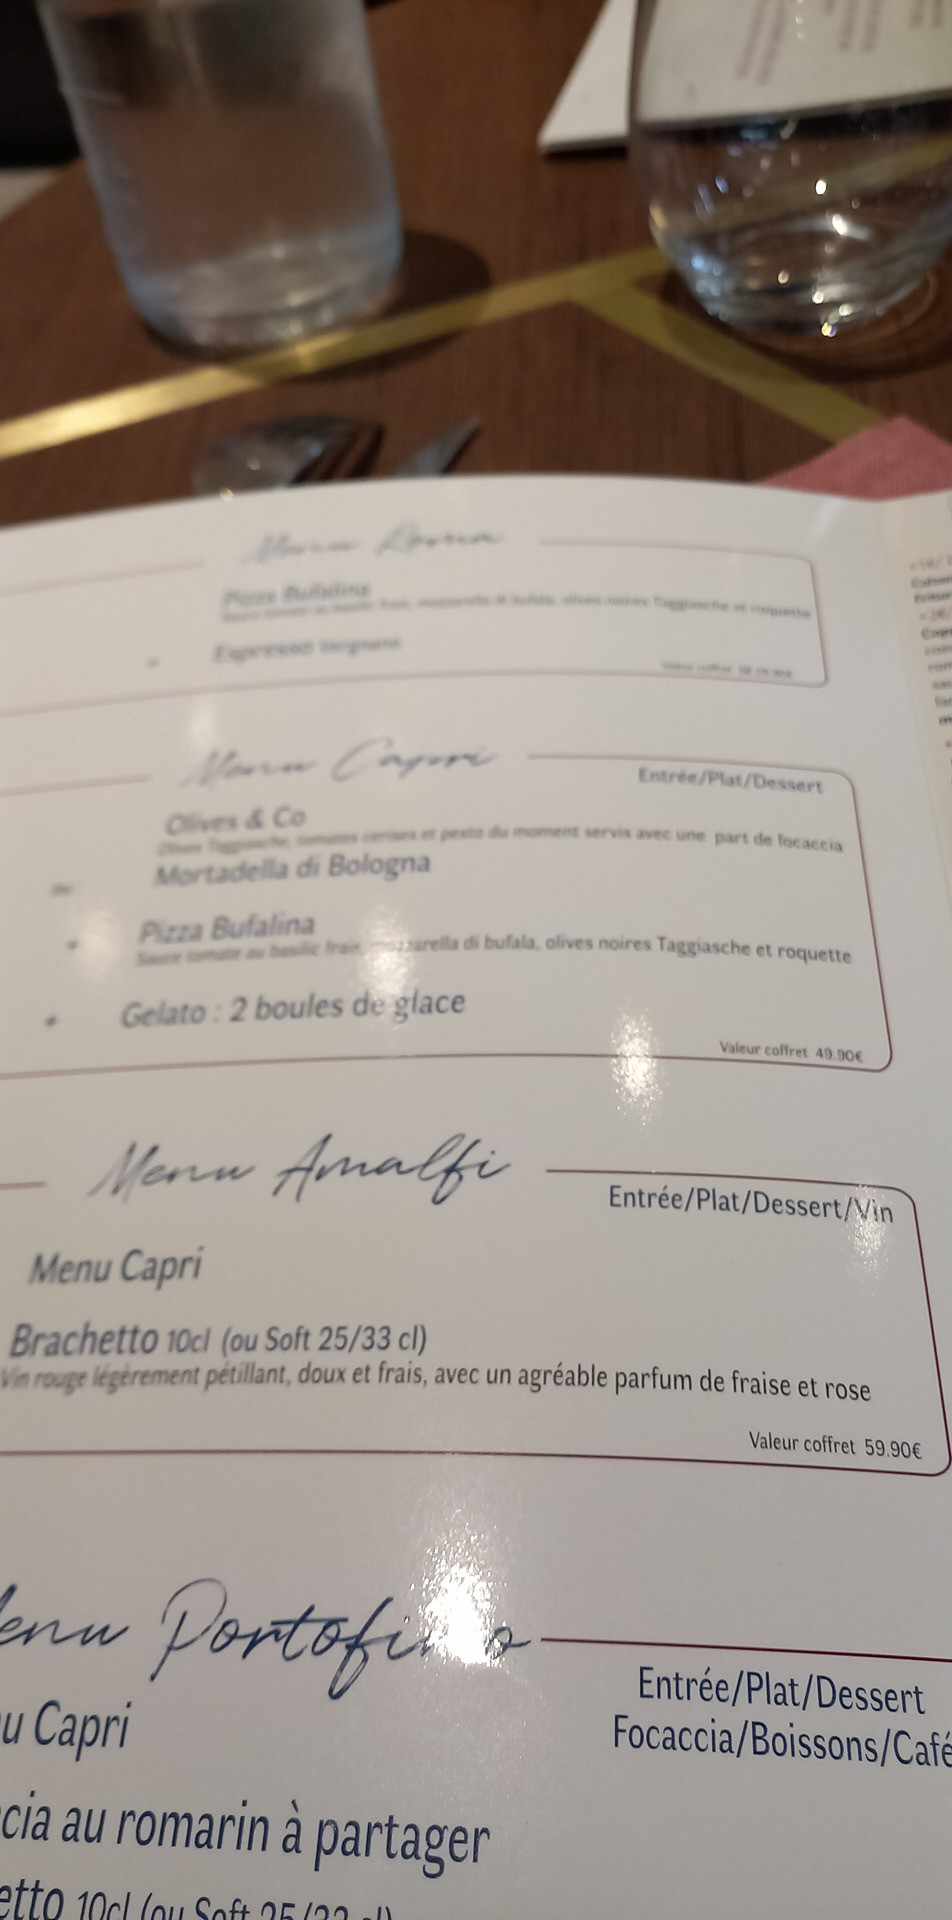 Menu Roma
Pizza Bufalina
Espresso
Menu Capri
Entrée/Plat/Dessert
Olives & Co
Olives Taggiasche, tomates cerises et pesto du moment servis avec une part de focaccia
ou
Mortadella di Bologna
+
Pizza Bufalina
Sauce tomate au basilic frais, mozzarella di bufala, olives noires Taggiasche et roquette
+
Gelato : 2 boules de glace
Valeur coffret 49.90€
Menu Amalfi
Entrée/Plat/Dessert/Vin
Menu Capri
Brachetto 10cl (ou Soft 25/33 cl)
Vin rouge légèrement pétillant, doux et frais, avec un agréable parfum de fraise et rose
Valeur coffret 59.90€
enu Portofino
Entrée/Plat/Dessert
Focaccia/Boissons/Café
u Capri
cia au romarin à partager
etto 10cl (ou Soft 25/33 cl)